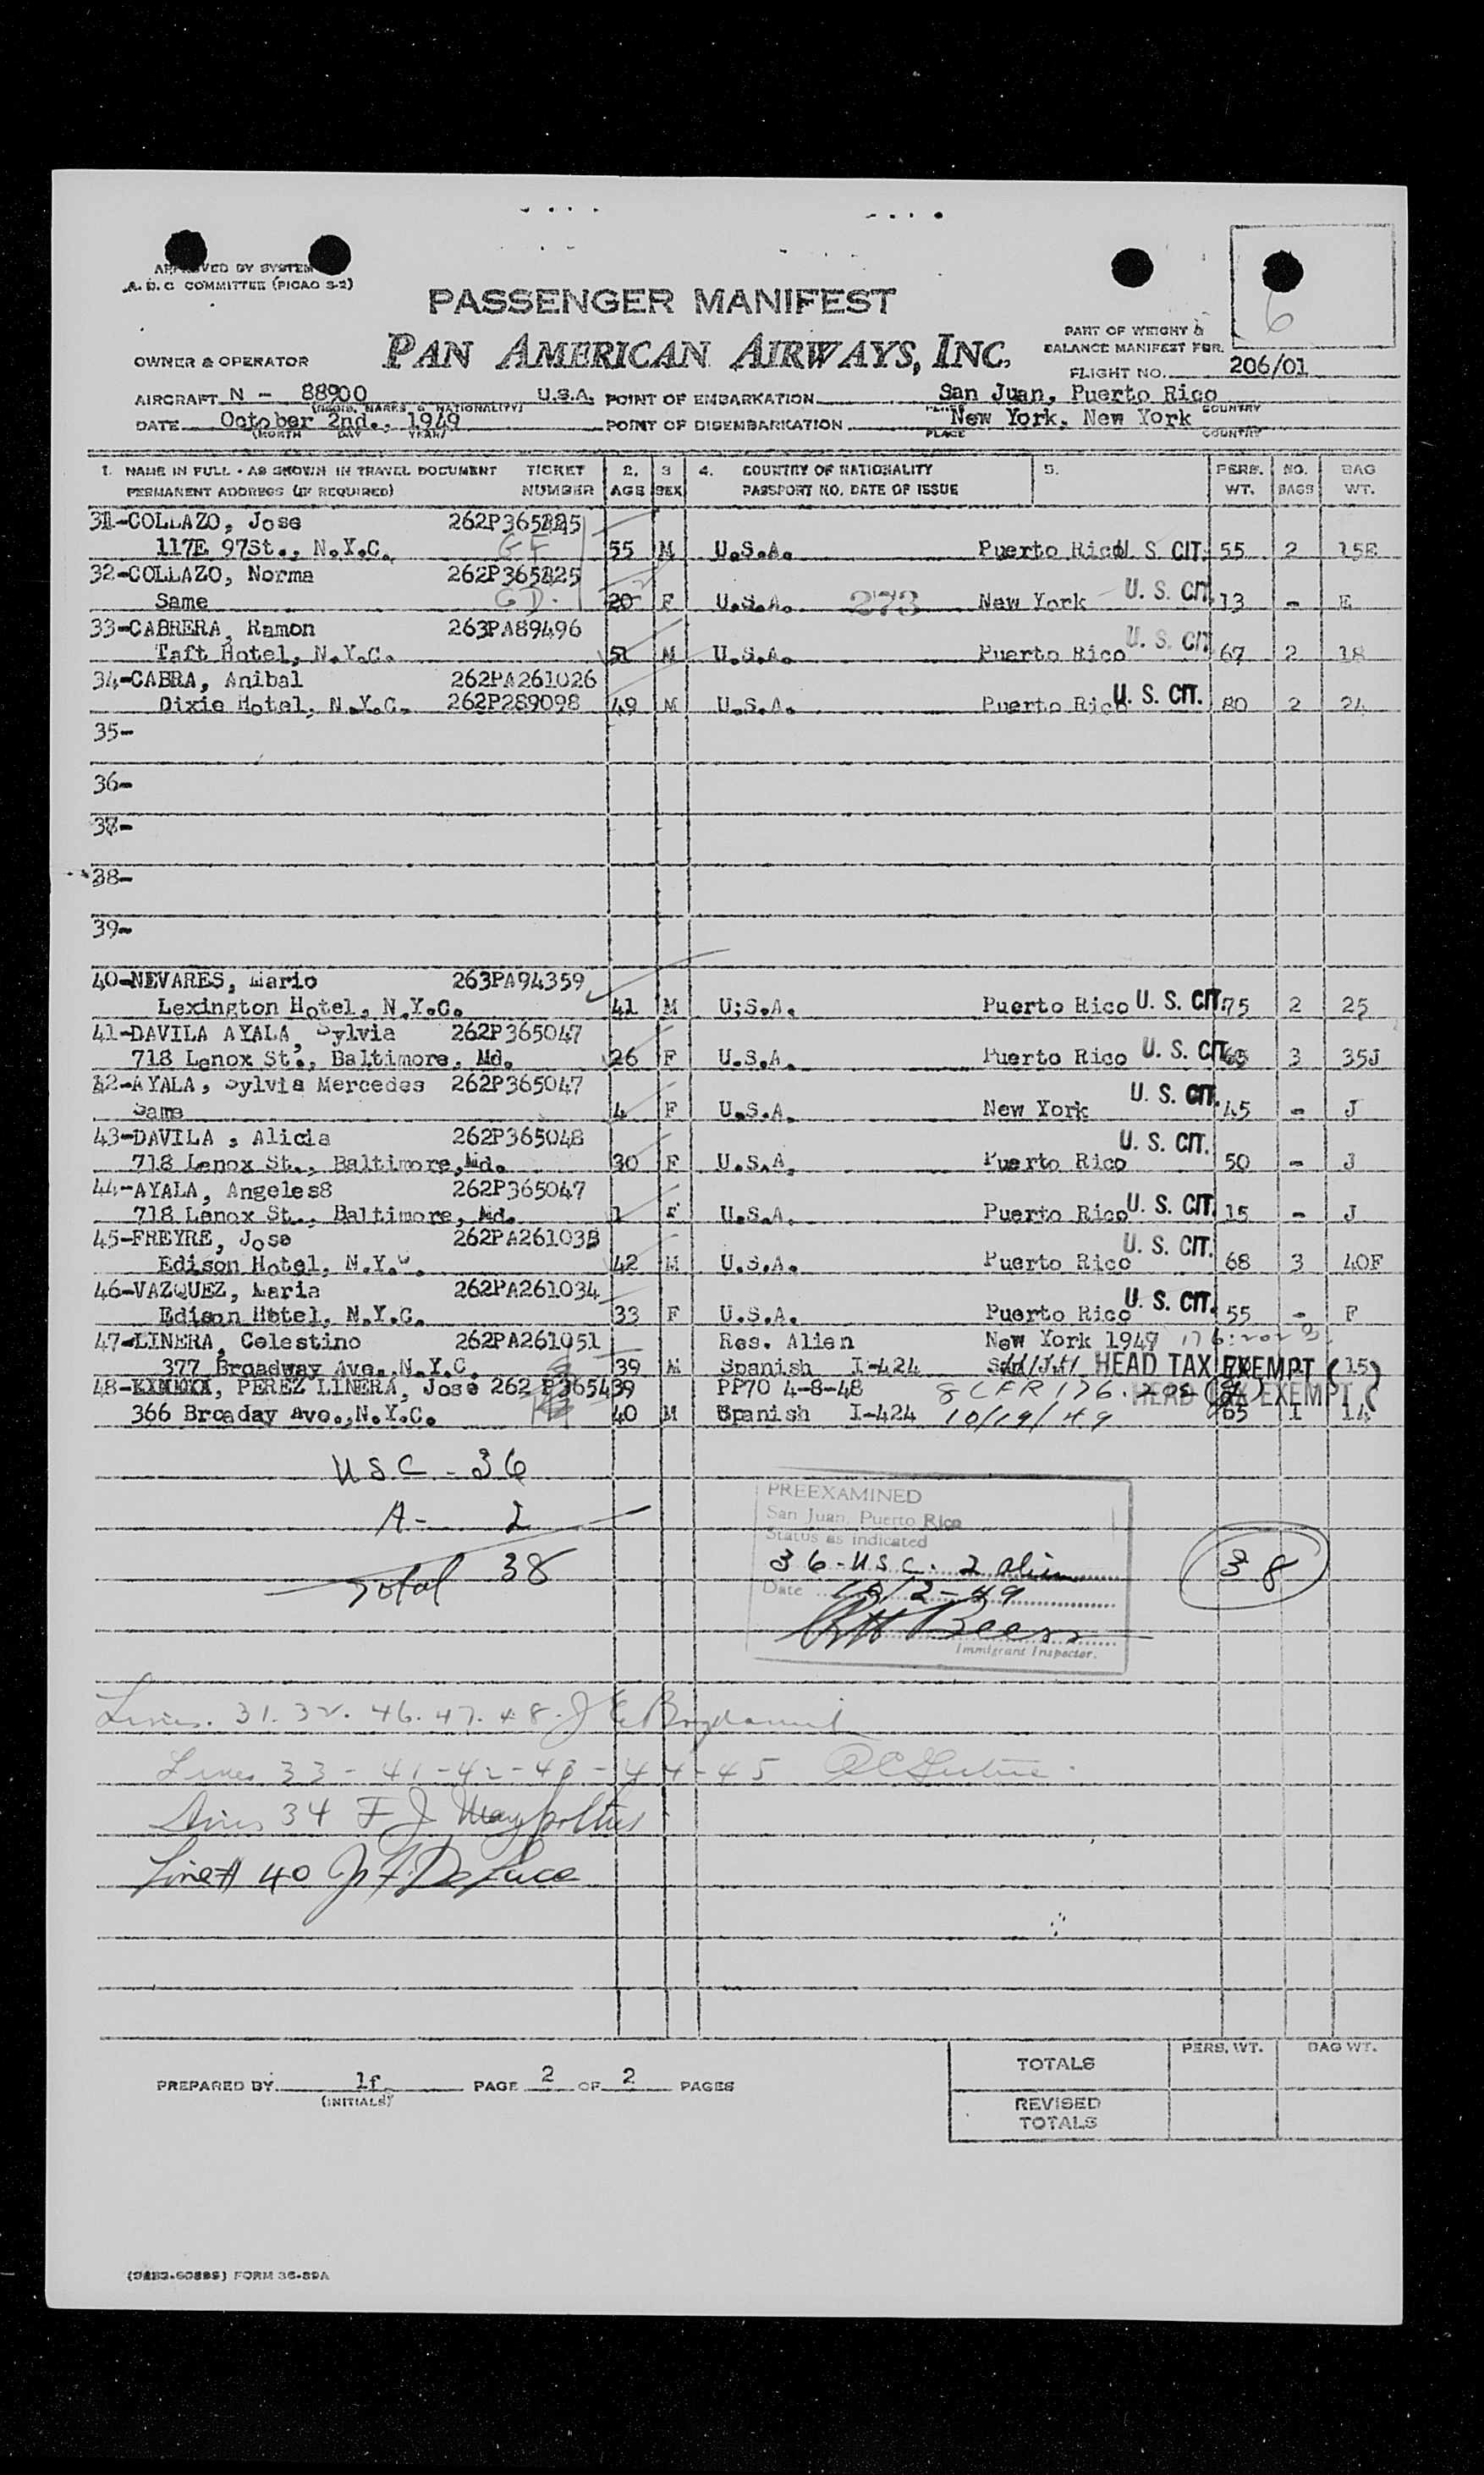 APPROVED BY SYSTEM
A. D. C COMMITTEE (PICAO S-2)
6
PASSENGER MANIFEST
PAN AMERICAN AIRWAYS, INC.
PART OF WEIGHT &
BALANCE MANIFEST FOR
OWNER & OPERATOR
FLIGHT NO. 206/01
AIRCRAFT N - 88900 U.S.A. POINT OF EMBARKATION San Juan, Puerto Rico
(REGIS. MARKS & NATIONALITY) PLACE COUNTRY
DATE October 2nd., 1949 POINT OF DISEMBARKATION New York, New York
(MONTH DAY YEAR) PLACE COUNTRY
1. NAME IN FULL - AS SHOWN IN TRAVEL DOCUMENT TICKET 2. 3 4. COUNTRY OF NATIONALITY 5. PERS. NO. BAG
PERMANENT ADDRESS (IF REQUIRED) NUMBER AGE SEX PASSPORT NO. DATE OF ISSUE WT. BAGS WT.
31-COLLAZO, Jose
117E 97St., N.Y.C. 55 M U.S.A. Puerto Rico U. S. CIT. 55 2 15E
32-COLLAZO, Norma
Same 20 F U.S.A. 273 New York U. S. CIT. 13 - E
33-CABRERA, Ramon 263PA89496
Taft Hotel, N.Y.C. 51 M U.S.A. Puerto Rico U. S. CIT. 67 2 18
34-CABRA, Anibal 262PA261026
Dixie Hotel, N.Y.C. 262P289098 49 M U.S.A. Puerto Rico U. S. CIT. 80 2 24
35-
36-
37-
38-
39-
40-NEVARES, Mario 263PA94359
Lexington Hotel, N.Y.C. 41 M U;S.A. Puerto Rico U. S. CIT. 75 2 25
41-DAVILA AYALA, Sylvia 262P365047
718 Lenox St., Baltimore, Md. 26 F U.S.A. Puerto Rico U. S. CIT. 3 35J
42-AYALA, Sylvia Mercedes 262P365047
Same 4 F U.S.A. New York U. S. CIT. 45 - J
43-DAVILA , Alicia 262P365048
718 Lenox St., Baltimore,Md. 30 F U.S.A. Puerto Rico U. S. CIT. 50 - J
44-AYALA, Angeles8 262P365047
718 Lenox St., Baltimore, Md. 1 F U.S.A. Puerto Rico U. S. CIT. 15 - J
45-FREYRE, Jose
Edison Hotel, N.Y.C. 42 M U.S.A. Puerto Rico U. S. CIT. 68 3 40F
46-VAZQUEZ, Maria 262PA261034
Edison Hotel, N.Y.C. 33 F U.S.A. Puerto Rico U. S. CIT. 55 - F
47-LINERA, Celestino 262PA261051 Res. Alien New York 1949
377 Broadway Ave. N.Y.C. 39 M Spanish I-424 HEAD TAX EXEMPT ( 15 )
48- PEREZ LINERA, Jose 262 P365439 PP70 4-8-48 8 CFR 176. HEAD TAX EXEMPT (
366 Broaday Ave.,N.Y.C. 40 M Spanish I-424 10/19/49 65 1 14
U S C - 36
A- 2
Total 38
PREEXAMINED
San Juan, Puerto Rico
Status as indicated
36-U S C. 2 Alien
Date 10/2-49
Immigrant Inspector.
38
Lines. 31. 32. 46. 47. 48.
Lines 33 - 41 - 42 - 43 - 44 - 45
Lines 34 F J
Line# 40 J F. DeLuca
TOTALS PERS. WT. BAG WT.
PREPARED BY lf PAGE 2 OF 2 PAGES
(INITIALS)
REVISED
TOTALS
FORM 36-39A